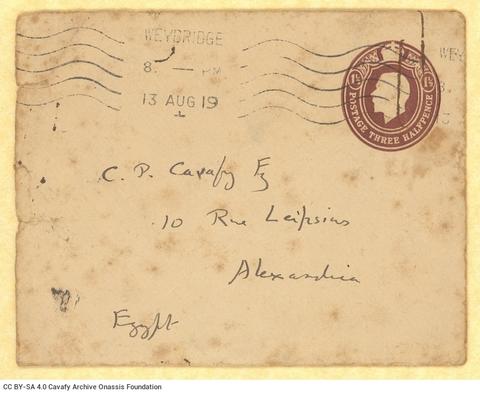 WEYBRIDGE
8. — PM
13 AUG 19
WEY
8.
13
1½ 1½
POSTAGE THREE HALFPENCE
C. P. Cavafy Eq
10 Rue Leipsius
Alexandria
Egypt
CC BY-SA 4.0 Cavafy Archive Onassis Foundation